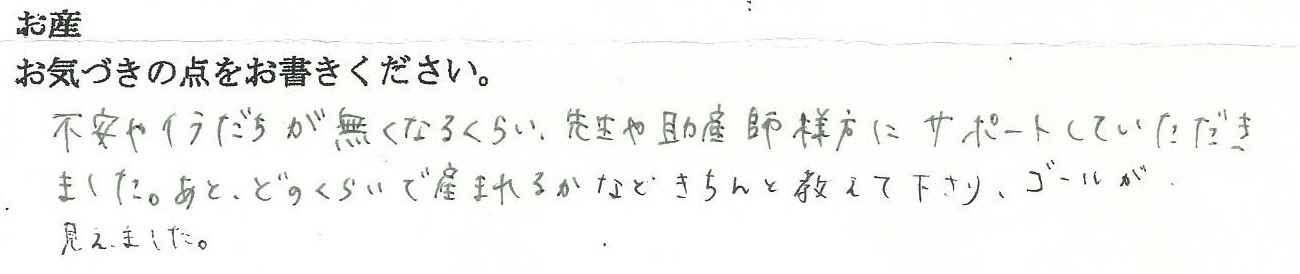 お産
お気づきの点をお書きください。
不安やイラだちが無くなるくらい、先生や助産師様方にサポートしていただき
ました。あと、どのくらいで産まれるかなどきちんと教えて下さり、ゴールが
見えました。